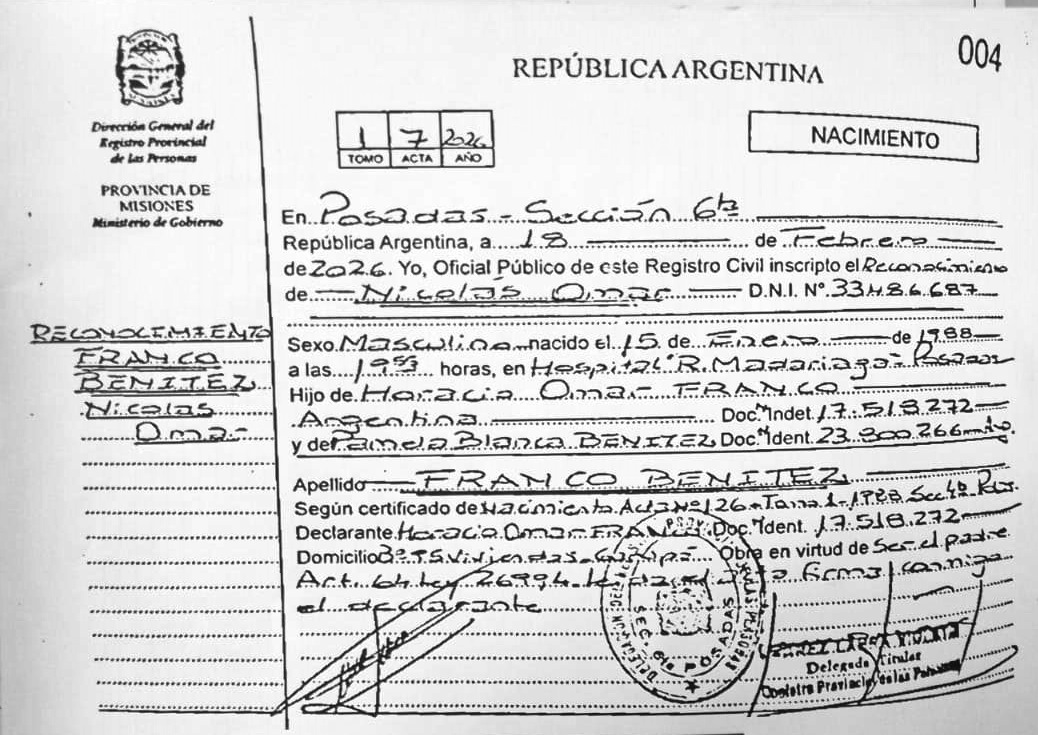 004
REPÚBLICA ARGENTINA
Dirección General del
Registro Provincial
de las Personas
PROVINCIA DE
MISIONES
Ministerio de Gobierno
1 7 2026
TOMO ACTA AÑO
NACIMIENTO
En Posadas - Sección 6ta
República Argentina, a 18 de Febrero
de 2026. Yo, Oficial Público de este Registro Civil inscripto el Reconocimiento
de Nicolás Omar D.N.I. Nº 33.486.687
RECONOCIMIENTO
FRANCO
BENITEZ
Nicolas
Omar-
Sexo Masculino nacido el 15 de Enero de 1988
a las 19 horas, en Hospital R. Madariaga - Posadas
Hijo de Horacio Omar FRANCO
Argentina Doc. Indet 17.518.272
y de Pamela Blanca BENITEZ Doc. Ident. 23.800.266
Apellido FRANCO BENITEZ
Según certificado de Nacimiento Acta Nº 126 - Tomo 1 - 1988 Secc 4º
Declarante Horacio Omar FRANCO Doc. Ident. 17.518.272
Domicilio Bº Viviendas Obra en virtud de Ser el padre
Art. 64 Ley 26994 firma conmigo
el declarante
SEC. 6ta POSADAS
Delegada Titular
Registro Provincial de las Personas